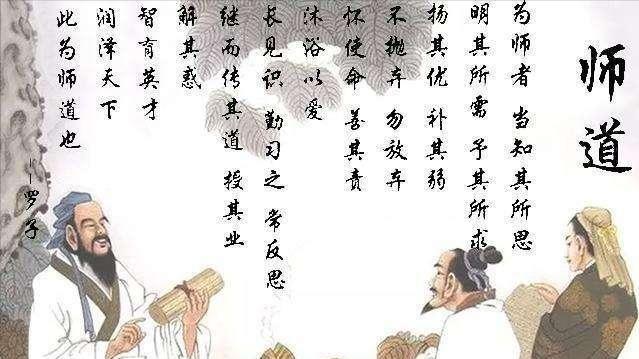 师道
为师者 当知其所思
明其所需 予其所求
扬其优 补其弱
不抛弃 勿放弃
怀使命 善其责
沐浴以爱
长见识 勤习之 常反思
继而传其道 授其业
解其惑
智育英才
润泽天下
此为师道也
——罗子